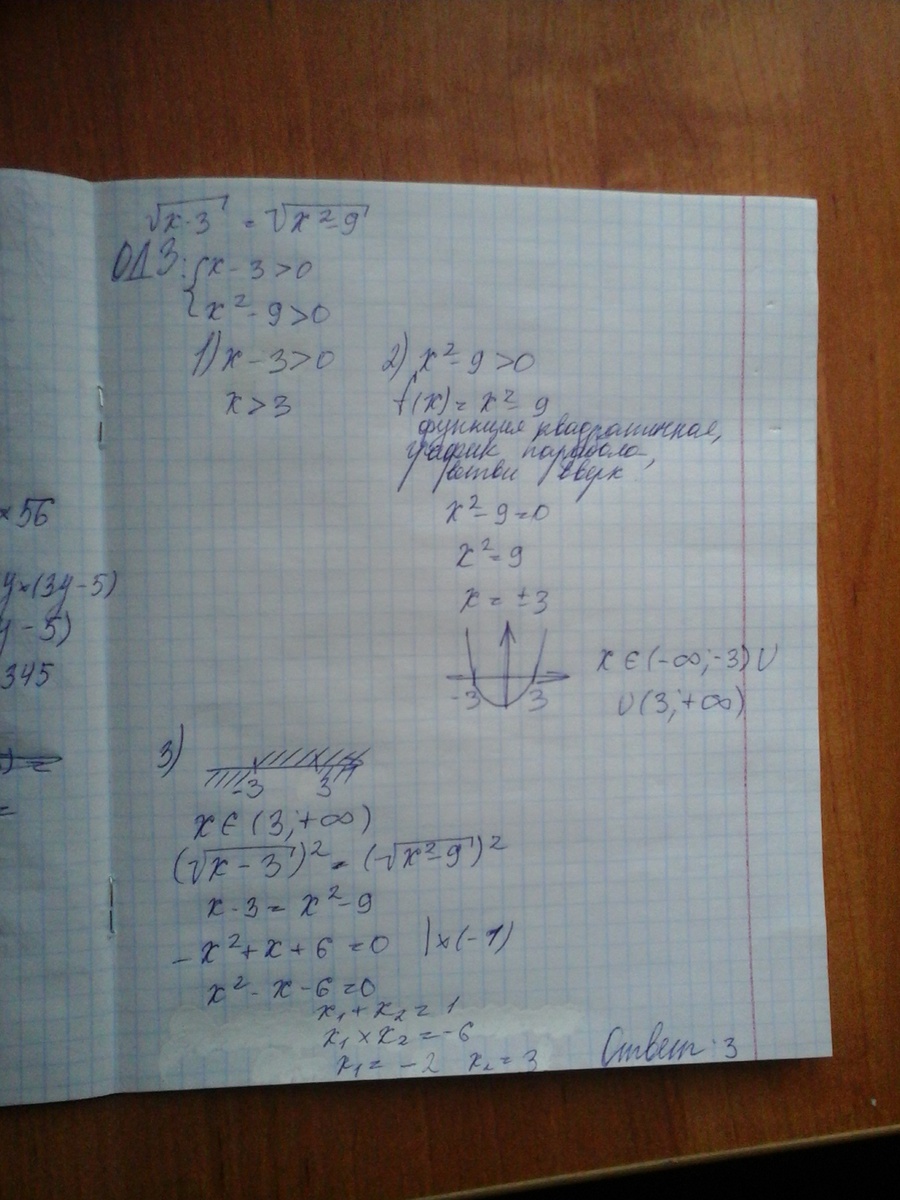 √x-3 = √x²-9
ОДЗ: { x - 3 > 0
x² - 9 > 0
1) x - 3 > 0
x > 3
2) x² - 9 > 0
f(x) = x² - 9
функция квадратичная,
график парабола,
ветви вверх
x² - 9 = 0
x² = 9
x = ±3
-3 3
x ∈ (-∞; -3) ∪
∪ (3; +∞)
3)
-3 3
x ∈ (3; +∞)
(√x - 3)² = (√x² - 9)²
x - 3 = x² - 9
-x² + x + 6 = 0 | × (-1)
x² - x - 6 = 0
x₁ + x₂ = 1
x₁ × x₂ = -6
x₁ = -2 x₂ = 3
Ответ: 3
× 56
y × (3y - 5)
y - 5)
345
=